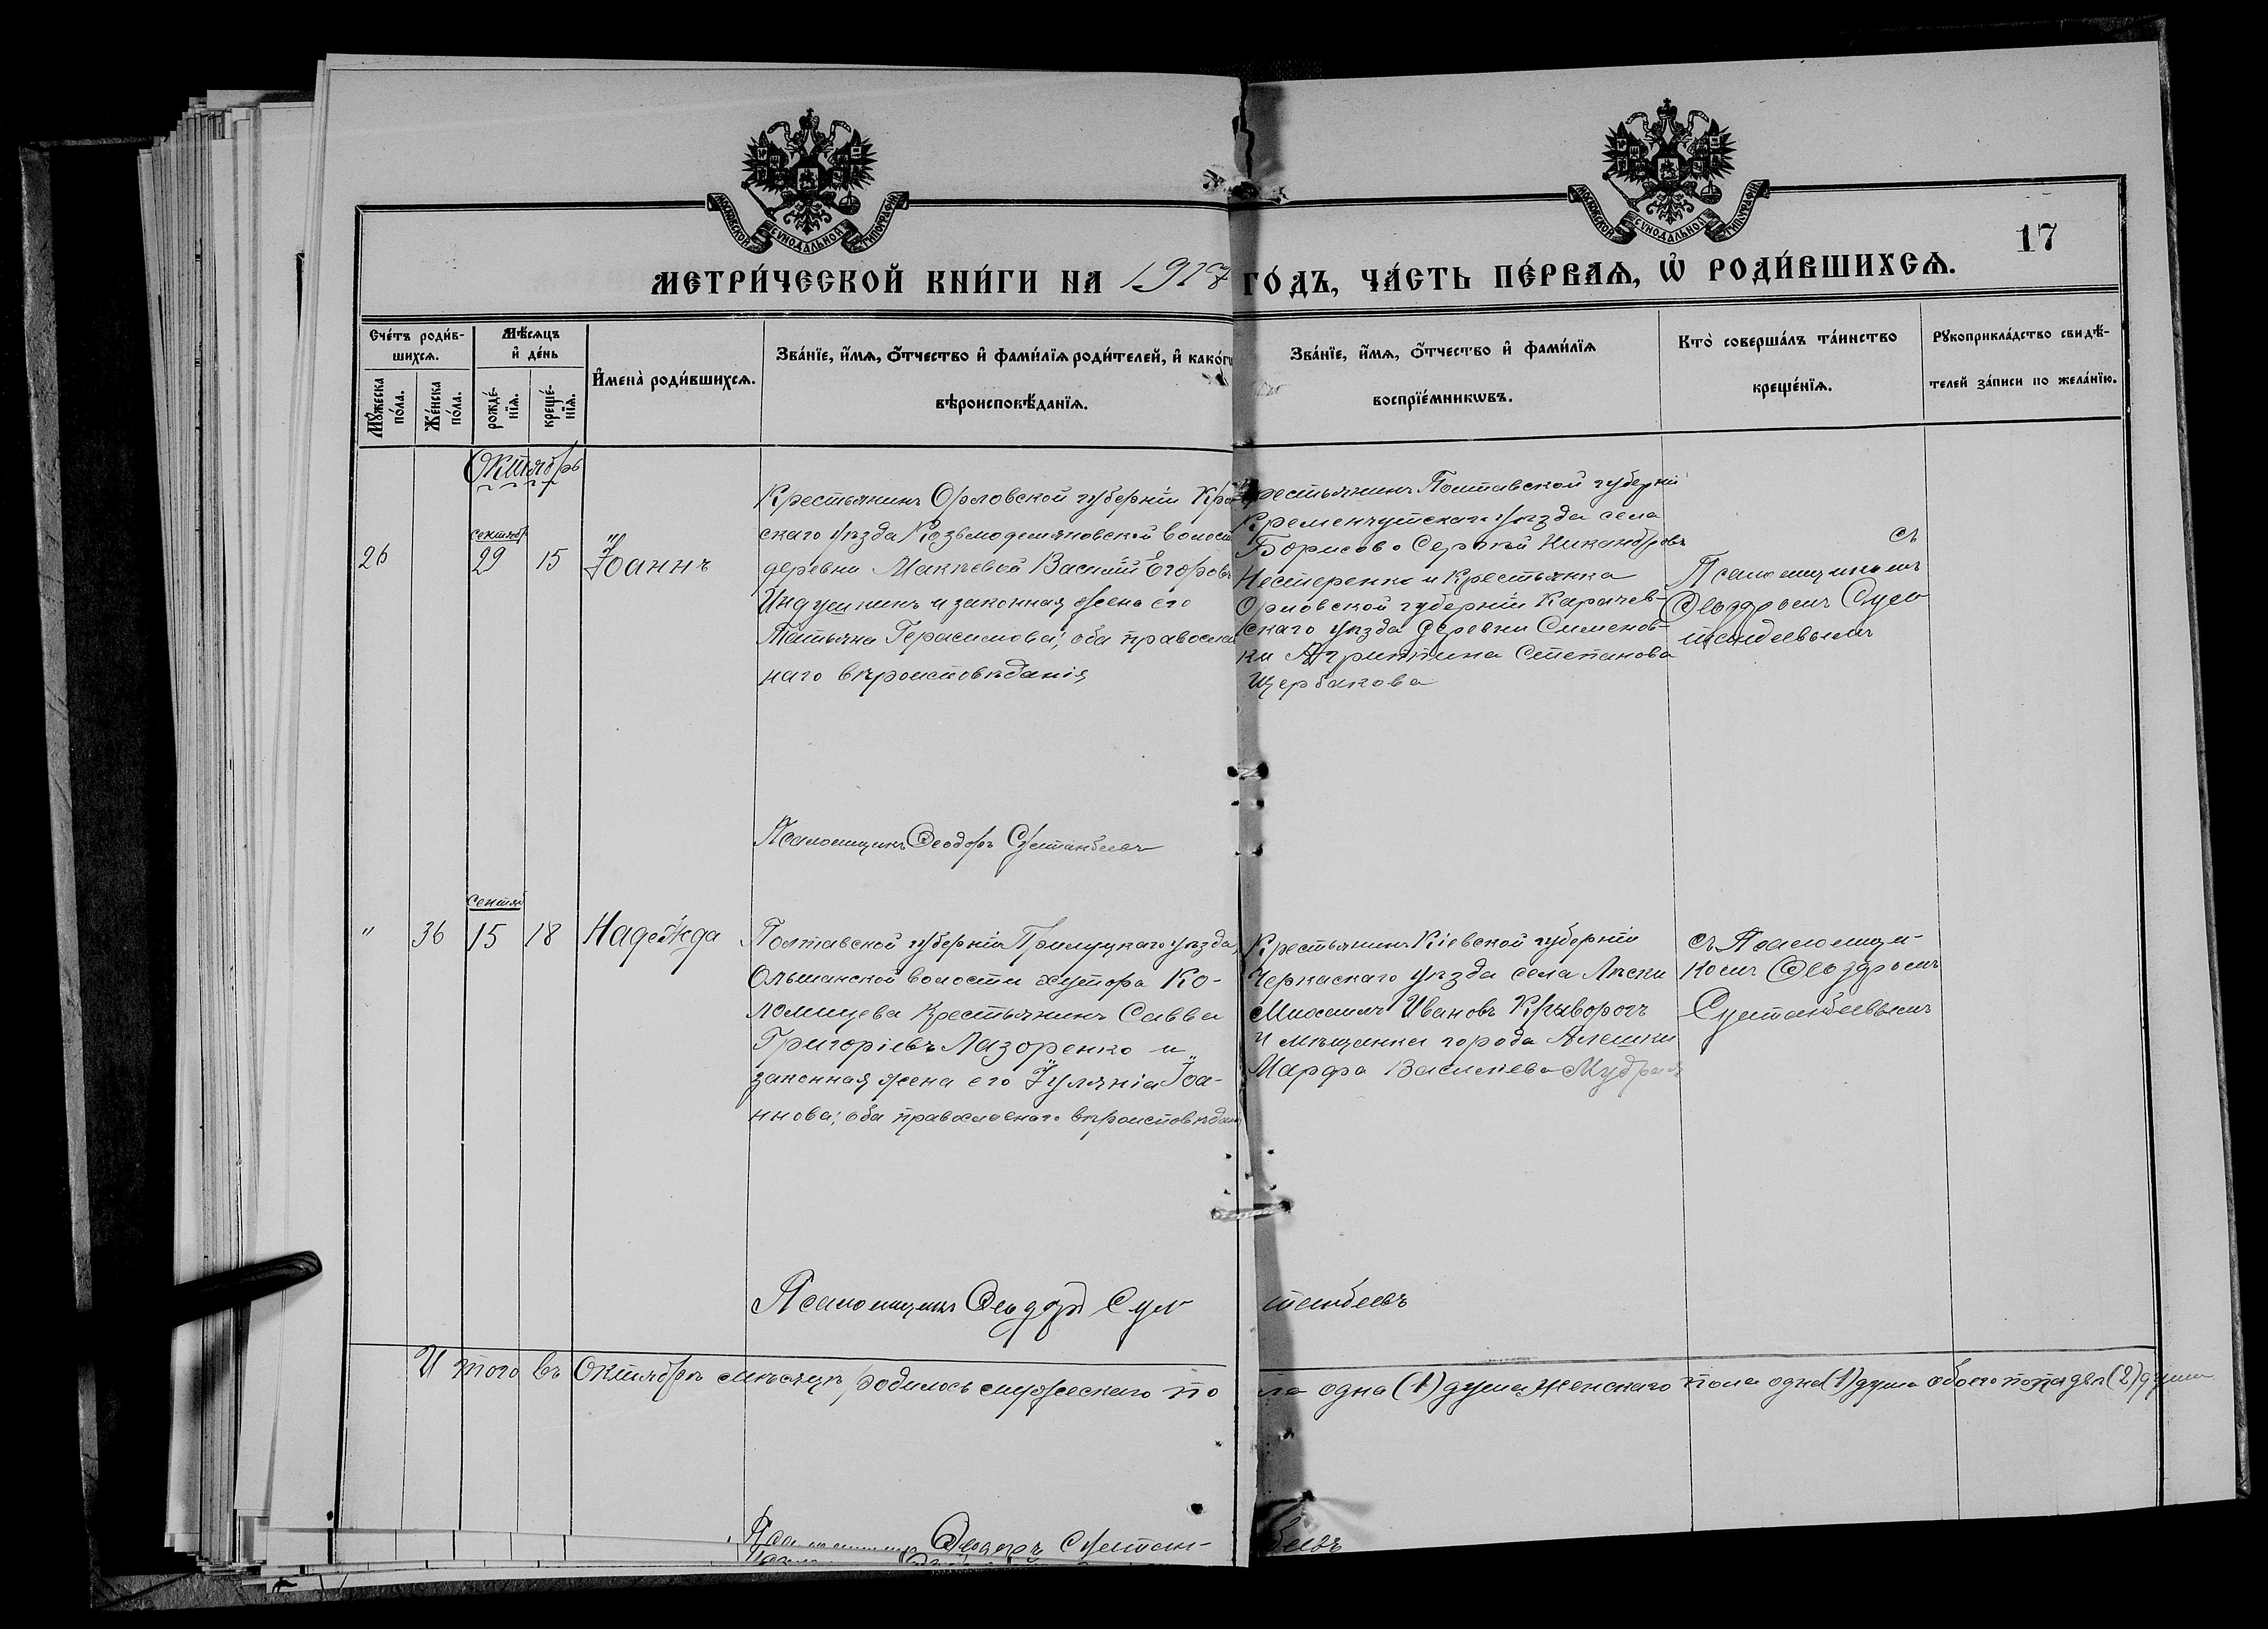 МОСКОВСКОЙ СѴНОДАЛЬНОЙ ТИПОГРАФІИ
МОСКОВСКОЙ СѴНОДАЛЬНОЙ ТИПОГРАФІИ
17
МЕТРИ́ЧЕСКОЙ КНИ́ГИ НА 1917 ГО́ДЪ, ЧА́СТЬ ПЕ́РВАѦ, Ѡ҆ РОДИ́ВШИХСѦ.
Сче́тъ роди́в-
шихсѧ.
Мꙋ́жеска по́ла.
Же́нска по́ла.
Мѣ́сѧцъ
и҆ де́нь
рожде́-
нїѧ.
креще́-
нїѧ.
И҆мена̀ роди́вшихсѧ.
Зва́нїе, и҆́мѧ, ѻ҆́тчество и҆ фами́лїѧ роди́телей, и҆ како́гѡ
вѣроисповѣ́данїѧ.
Зва́нїе, и҆́мѧ, ѻ҆́тчество и҆ фами́лїѧ
воспрїе́мникѡвъ.
Кто̀ соверша́лъ та́инство
креще́нїѧ.
Рꙋкоприкла́дство свидѣ́-
телей за́писи по жела́нїю.
Октябрь
26
сентяб
29 15 Іоаннъ
Крестьянинъ Орловской губерніи
скаго уѣзда Козьмодемьяновской волост
деревни Макѣевой Василій Егоровъ
Индушкинъ и законная жена его
Татьяна Герасимова; оба православ
наго вѣроисповѣданія
Крестьянинъ Полтавской губерніи
Кременчугскаго уѣзда села
Борисово Сергѣй Никандровъ
Нестеренко и крестьянка
Орловской губерніи Карачев-
скаго уѣзда деревни Сименов-
ки Агриппина Степанова
Щербакова
съ
Псаломщикомъ
Ѳеодоромъ Сул
танбеевымъ
Псаломщикъ Ѳеодоръ Султанбеевъ
" 36
сентяб
15 18 Надежда
Полтавской губерніи Прилуцкаго уѣзда,
Ольшанской волости хутора Ко-
ломицева крестьянинъ Савва
Григоріевъ Лазоренко и
законная жена его Іулянія Іоа-
ннова; оба православнаго вѣроисповѣдан
Крестьянинъ Кіевской губерніи
Черкаскаго уѣзда села Лѣски
Михаилъ Ивановъ Криворогъ
и мѣщанка города Алешки
Марфа Василіева Мудрая
съ Псаломщи-
комъ Ѳеодоромъ
Султанбеевымъ
Псаломщикъ Ѳеодоръ Сул танбеевъ
И того въ Октябрѣ мѣсяцѣ родилось мужескаго по ла одна (1) душа женскаго пола одна (1) душа обоего пола двѣ (2) души
Псаломщикъ Ѳеодоръ Султан- беевъ